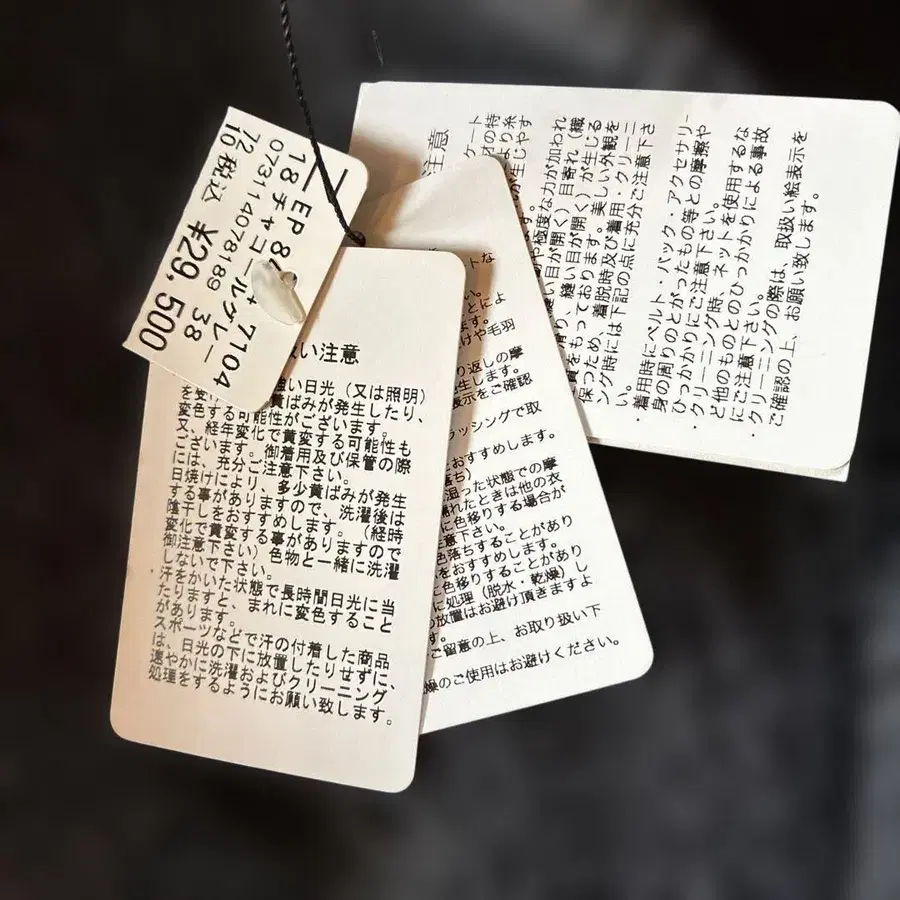 EP
7104
18 チャコールグレー
073114078189 38
72
10 税込 ¥29,500
い注意
強い日光(又は照明)
黄ばみが発生したり、
変色する可能性がございます。
又、経年変化で黄変する可能性も
ございます。御着用及び保管の際
には、充分ご注意下さい。
日焼けにより、多少黄ばみが発生
する事がありますので、洗濯後は
陰干しをおすすめします。(経時
変化で黄変する事がありますので
御注意下さい)色物と一緒に洗濯
しないで下さい。
・汗をかいた状態で長時間日光に当
たりますと、まれに変色すること
があります。
スポーツなどで汗の付着した商品
は、日光の下に放置したりせずに、
速やかに洗濯およびクリーニング
処理をするようにお願い致します。
とによ
けや毛羽
り返しの摩
生します。
表示をご確認
ラッシングで取
におすすめします。
落ち)
湿った状態での摩
濡れたときは他の衣
に色移りする場合が
意下さい。
色落ちすることがあり
をおすすめします。
に色移りすることがあり
に処理(脱水・乾燥)し
放置はお避け頂きますよ
す。
ご留意の上、お取り扱い下
燥のご使用はお避けください。
注意
ケート
の特
より糸
が生じやす
や極度な力が加われ
目が開く)目寄れ(繊
滑り、縫い目が開く)が生じる
質をもっております。美しい外観を
保つため、着脱時及び着用・クリーニ
ング時には下記の点に充分ご注意下さ
い。
・着用時にベルト・バック・アクセサリー
身の周りのとがったもの等との摩擦や
ひっかかりにご注意下さい。
・クリーニング時、ネットを使用するな
ど他のものとのひっかかりによる事故
にご注意下さい。
・クリーニングの際は、取扱い絵表示を
ご確認の上、お願い致します。